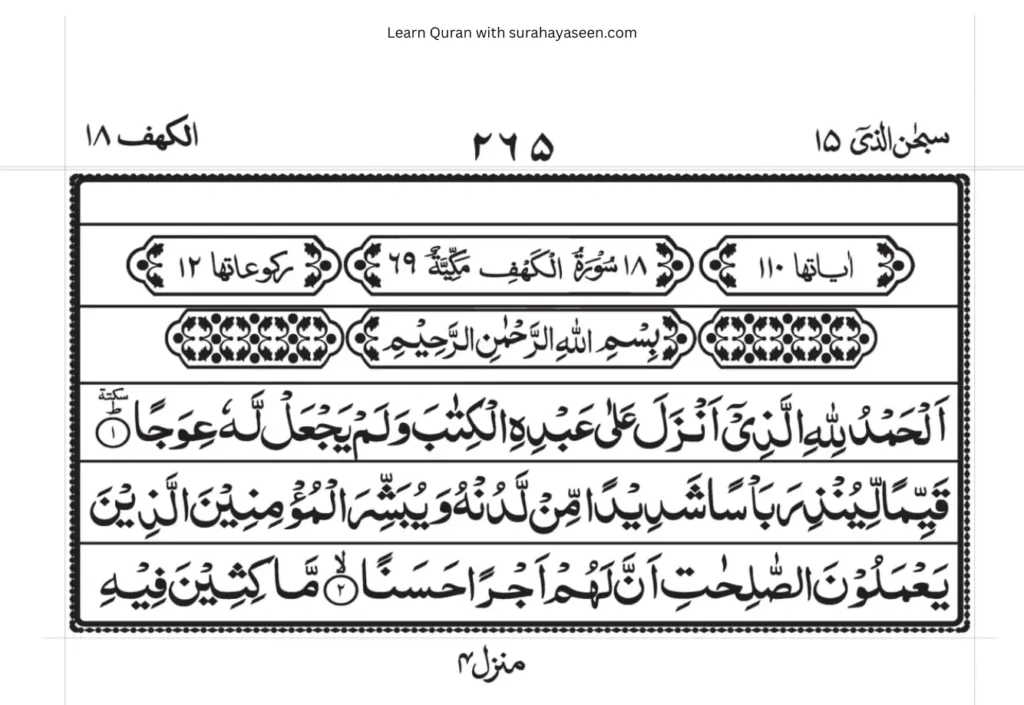 Learn Quran with surahayaseen.com
سبحٰن الذیٓ ۱۵
۲۶۵
الکهف ۱۸
اٰیاتها ۱۱۰
۱۸ سُوۡرَةُ الۡكَهۡفِ مَكِّيَّةٌ ۶۹
رکوعاتها ۱۲
بِسۡمِ اللهِ الرَّحۡمٰنِ الرَّحِيۡمِ
اَلۡحَمۡدُ لِلّٰهِ الَّذِىۡۤ اَنۡزَلَ عَلٰى عَبۡدِهِ الۡكِتٰبَ وَلَمۡ يَجۡعَلۡ لَّهٗ عِوَجًا ؕ سكتة ۱
قَيِّمًا لِّيُنۡذِرَ بَاۡسًا شَدِيۡدًا مِّنۡ لَّدُنۡهُ وَيُبَشِّرَ الۡمُؤۡمِنِيۡنَ الَّذِيۡنَ
يَعۡمَلُوۡنَ الصّٰلِحٰتِ اَنَّ لَهُمۡ اَجۡرًا حَسَنًا ۙ ۲ مَّاكِثِيۡنَ فِيۡهِ
منزل ۴